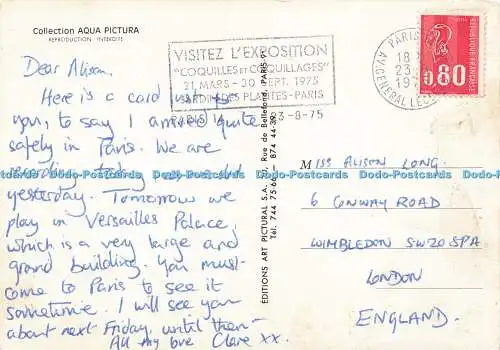 Collection AQUA PICTURA
REPRODUCTION INTERDITE
Dear Alison,
Here is a card
you, to say I arrived quite
safely in Paris. We are
recording today, as we did
yesterday. Tomorrow we
play in Versailles Palace,
which is a very large and
grand building. You must
come to Paris to see it
sometime. I will see you
about next Friday, until then -
All my love Clare xx.
VISITEZ L'EXPOSITION
"COQUILLES ET COQUILLAGES"
21 MARS - 30 SEPT. 1975
JARDIN DES PLANTES - PARIS
PARIS 14 23-8-75
PARIS
18
23
19
AV. GENERAL LECLERC
REPUBLIQUE FRANCAISE
0.80
EDITIONS ART PICTURAL S.A. 70, Rue de Bellefond, PARIS-9e
Tél. 744 75-66 - 874 44-39
MISS ALISON LONG.
6 CONWAY ROAD
WIMBLEDON SW20 8PA
LONDON
ENGLAND.
Dodo-Postcards Dodo-Postcards Dodo-Postcards Dodo-Postcards